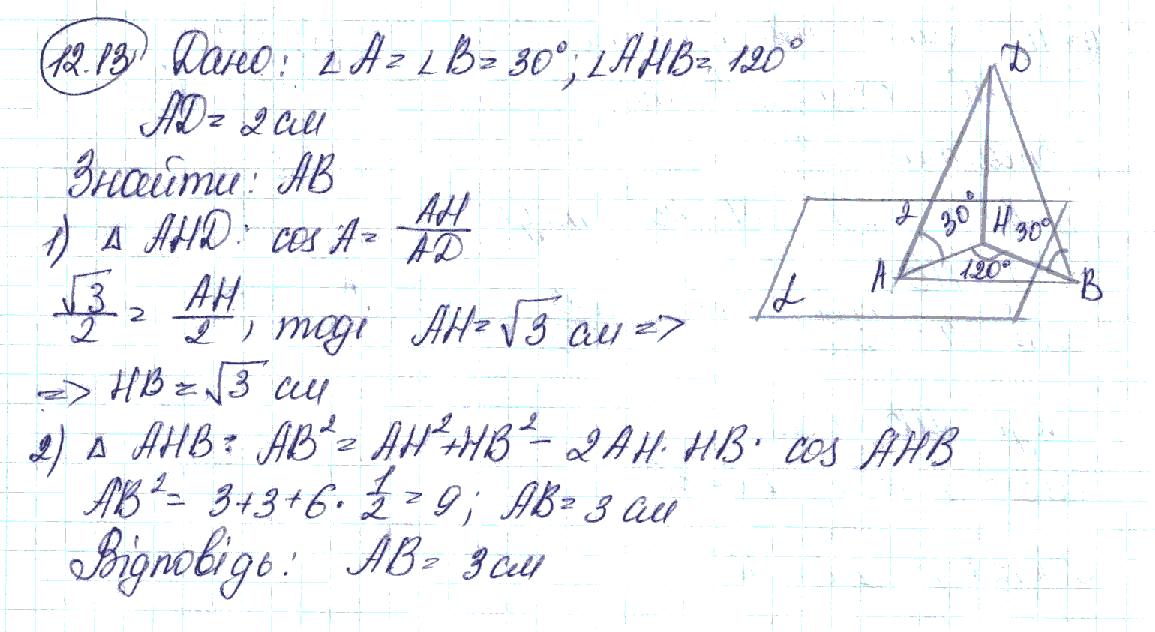 12.13 Дано: ∠A = ∠B = 30°; ∠AHB = 120°
AD = 2 см
Знайти: AB
1) Δ AHD: cos A = AH/AD
√3/2 = AH/2, тоді AH = √3 см =>
=> HB = √3 см
2) Δ AHB: AB² = AH² + HB² - 2AH · HB · cos AHB
AB² = 3+3+6 · 1/2 = 9; AB = 3 см
Відповідь: AB = 3 см
D
2 30° H 30°
A 120° B
α